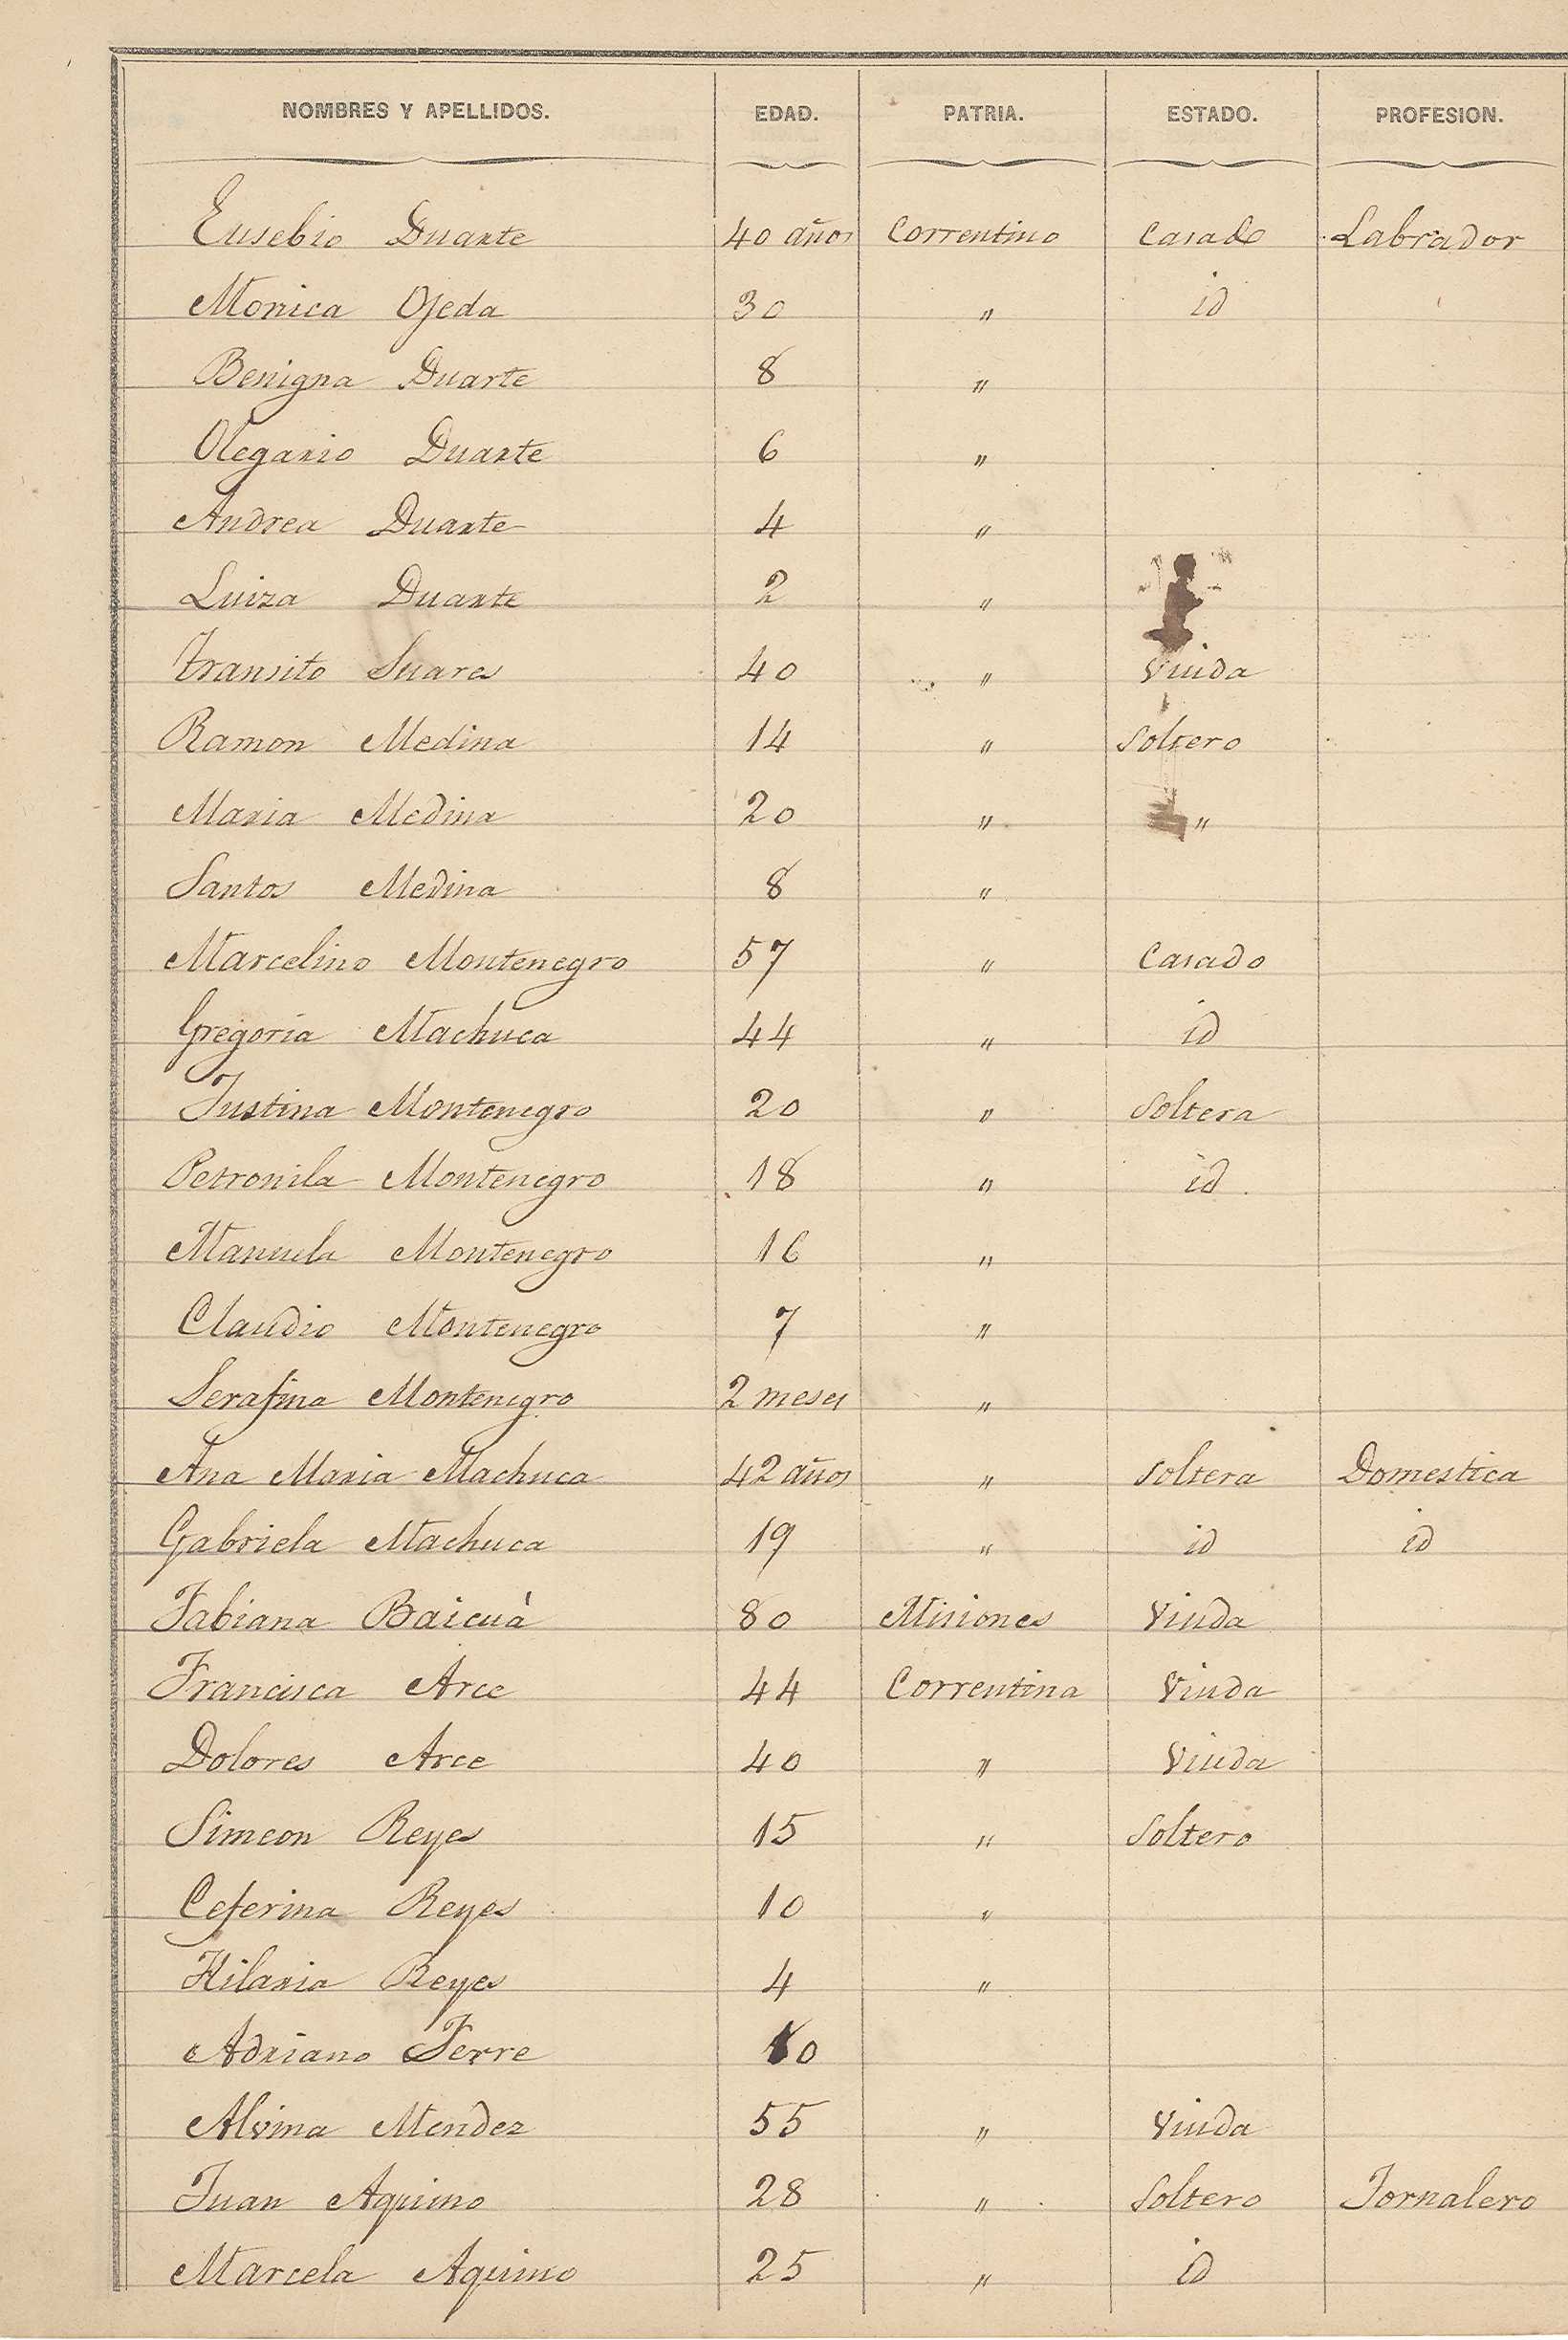 NOMBRES Y APELLIDOS. EDAD. PATRIA. ESTADO. PROFESION.
Eusebio Duarte 40 años Correntino Casado Labrador
Monica Ojeda 30 " id
Benigna Duarte 8 "
Olegario Duarte 6 "
Andrea Duarte 4 "
Luiza Duarte 2 "
Transito Suares 40 " Viuda
Ramon Medina 14 " Soltero
Maria Medina 20 " "
Santos Medina 8 "
Marcelino Montenegro 57 " Casado
Gregoria Machuca 44 " id
Justina Montenegro 20 " Soltera
Petronila Montenegro 18 " id
Manuela Montenegro 16 "
Claudio Montenegro 7 "
Serafina Montenegro 2 meses "
Ana Maria Machuca 42 años " Soltera Domestica
Gabriela Machuca 19 " id id
Fabiana Baicuà 80 Misiones Viuda
Francisca Arce 44 Correntina Viuda
Dolores Arce 40 " Viuda
Simeon Reyes 15 " Soltero
Ceferina Reyes 10 "
Hilaria Reyes 4 "
Adriano Ferre
Alvina Mendez 55 " Viuda
Juan Aquino 28 " Soltero Jornalero
Marcela Aquino 25 " id